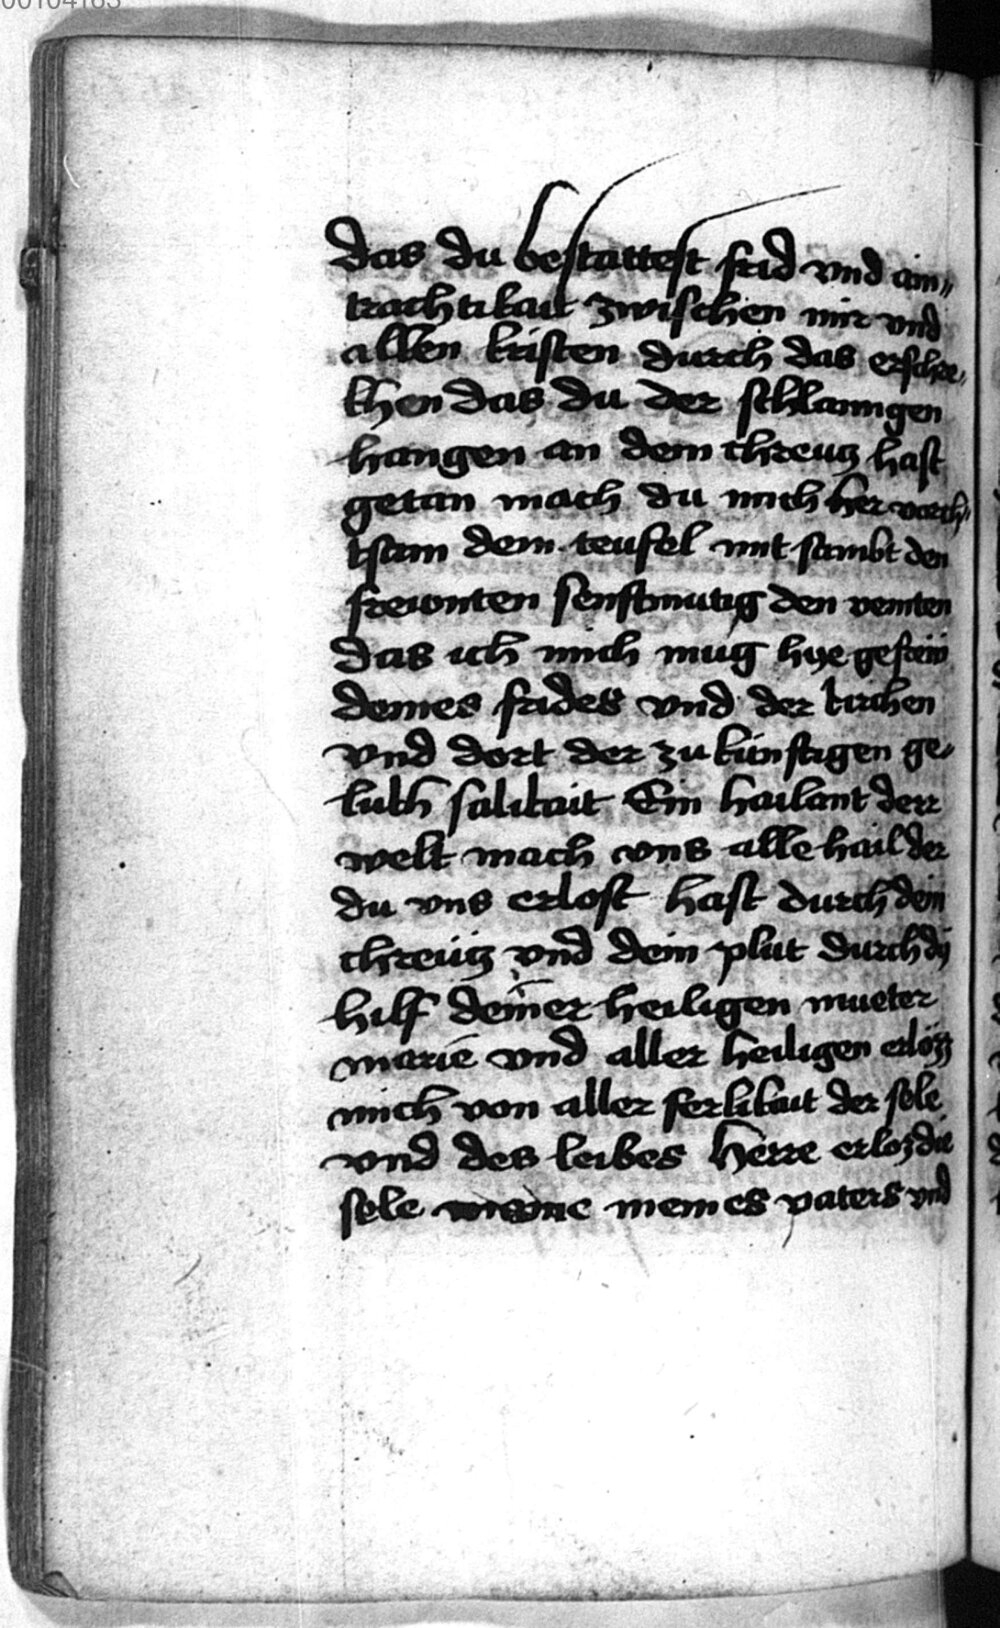 00104163
das du bestattest frid vnd ain„
trachtikait zwischen mir vnd
allen kristen durch das erschre„
khen das du der schlanngen
hangen an dem chreucz hast
getan mach du mich her vorch„
tsam dem teufel mit sambt den
frewnten senftmutig den veinten
das ich mich mug hye gefrew̄
deines frides vnd der kirchen
vnd dort der zu kunftigen ge„
lukh salikait Ein hailant derr
welt mach vns alle hail der
du vns erlost hast durch dein
chreücz vnd dein plut durch dy
hilf deiner heiligen mueter
marie vnd aller heiligen erlözz
mich von aller ferlikait der sele
vnd des leibes Herre erloz die
sele meines vaters vnd